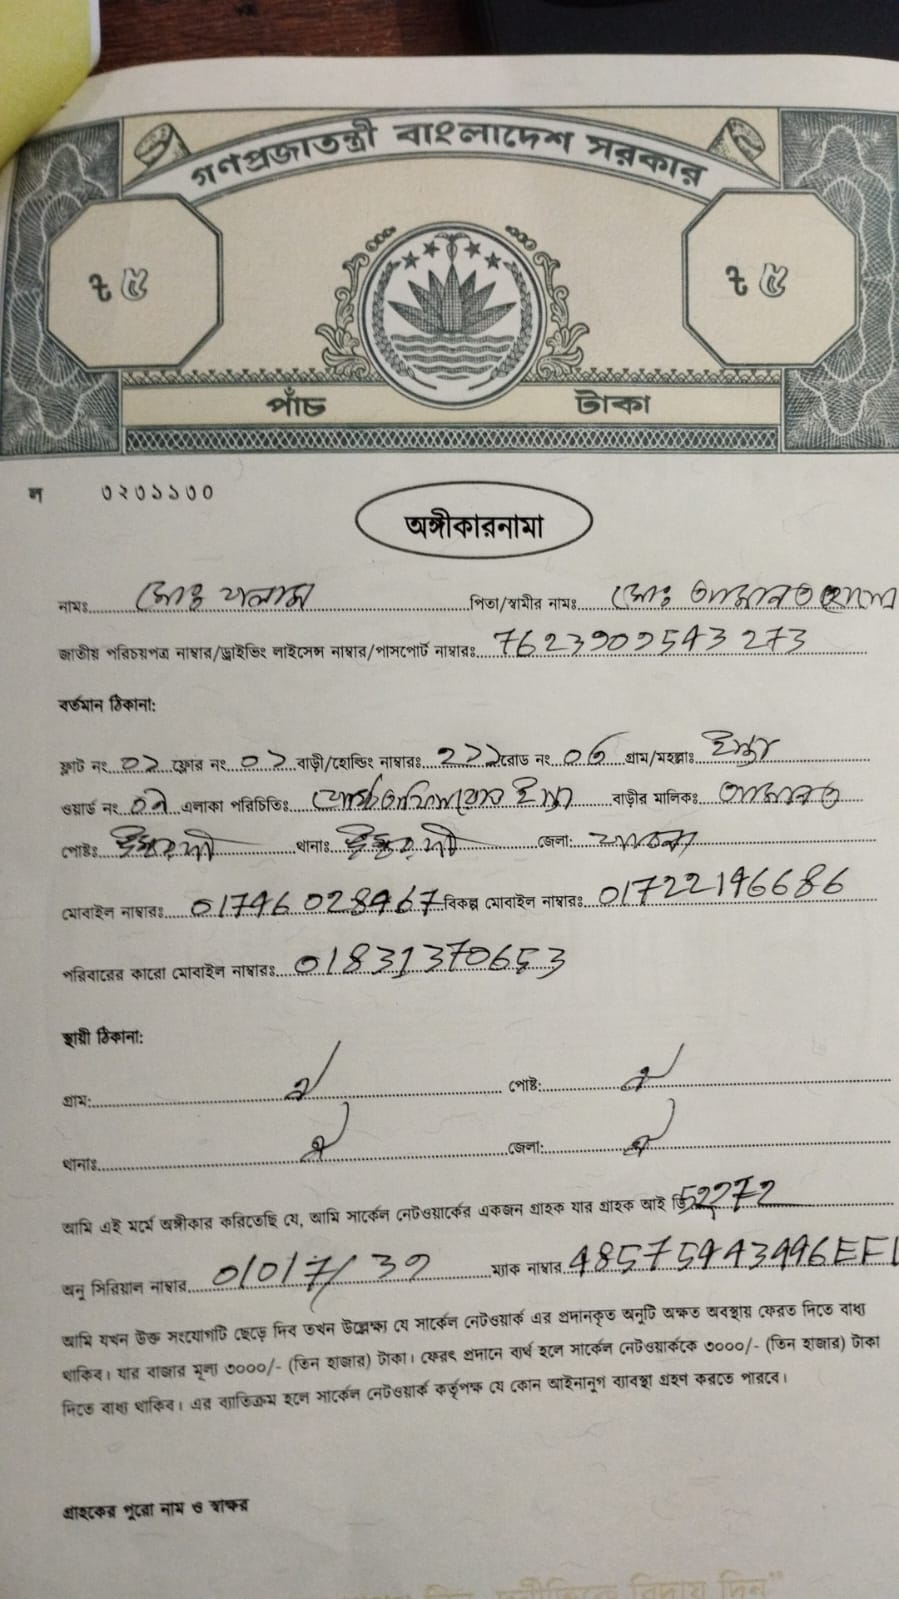 গণপ্রজাতন্ত্রী বাংলাদেশ সরকার
৳ ৫ ৳ ৫
পাঁচ টাকা
ল ৩২৩১১৩০
অঙ্গীকারনামা
নামঃ মোঃ পলাশ পিতা/স্বামীর নামঃ মোঃ আমানত
জাতীয় পরিচয়পত্র নাম্বার/ড্রাইভিং লাইসেন্স নাম্বার/পাসপোর্ট নাম্বারঃ
বর্তমান ঠিকানা:
ফ্লাট নং ০১ ফ্লোর নং ০১ বাড়ী/হোল্ডিং নাম্বারঃ ২১১ রোড নং ০৩ গ্রাম/মহল্লাঃ ইস্তা
ওয়ার্ড নং এলাকা পরিচিতিঃ ইস্তা বাড়ীর মালিকঃ আমানত
পোষ্টঃ ঈশ্বরদী থানাঃ ঈশ্বরদী জেলা: পাবনা
মোবাইল নাম্বারঃ বিকল্প মোবাইল নাম্বারঃ 01722196686
পরিবারের কারো মোবাইল নাম্বারঃ 01831370653
স্থায়ী ঠিকানা:
গ্রাম: ঐ পোষ্ট: ঐ
থানাঃ ঐ জেলা: ঐ
আমি এই মর্মে অঙ্গীকার করিতেছি যে, আমি সার্কেল নেটওয়ার্কের একজন গ্রাহক যার গ্রাহক আই ডি
অনু সিরিয়াল নাম্বার ম্যাক নাম্বার
আমি যখন উক্ত সংযোগটি ছেড়ে দিব তখন উল্লেক্ষ্য যে সার্কেল নেটওয়ার্ক এর প্রদানকৃত অনুটি অক্ষত অবস্থায় ফেরত দিতে বাধ্য
থাকিব। যার বাজার মূল্য ৩০০০/- (তিন হাজার) টাকা। ফেরৎ প্রদানে ব্যর্থ হলে সার্কেল নেটওয়ার্ককে ৩০০০/- (তিন হাজার) টাকা
দিতে বাধ্য থাকিব। এর ব্যাতিক্রম হলে সার্কেল নেটওয়ার্ক কর্তৃপক্ষ যে কোন আইনানুগ ব্যাবস্থা গ্রহণ করতে পারবে।
গ্রাহকের পুরো নাম ও স্বাক্ষর